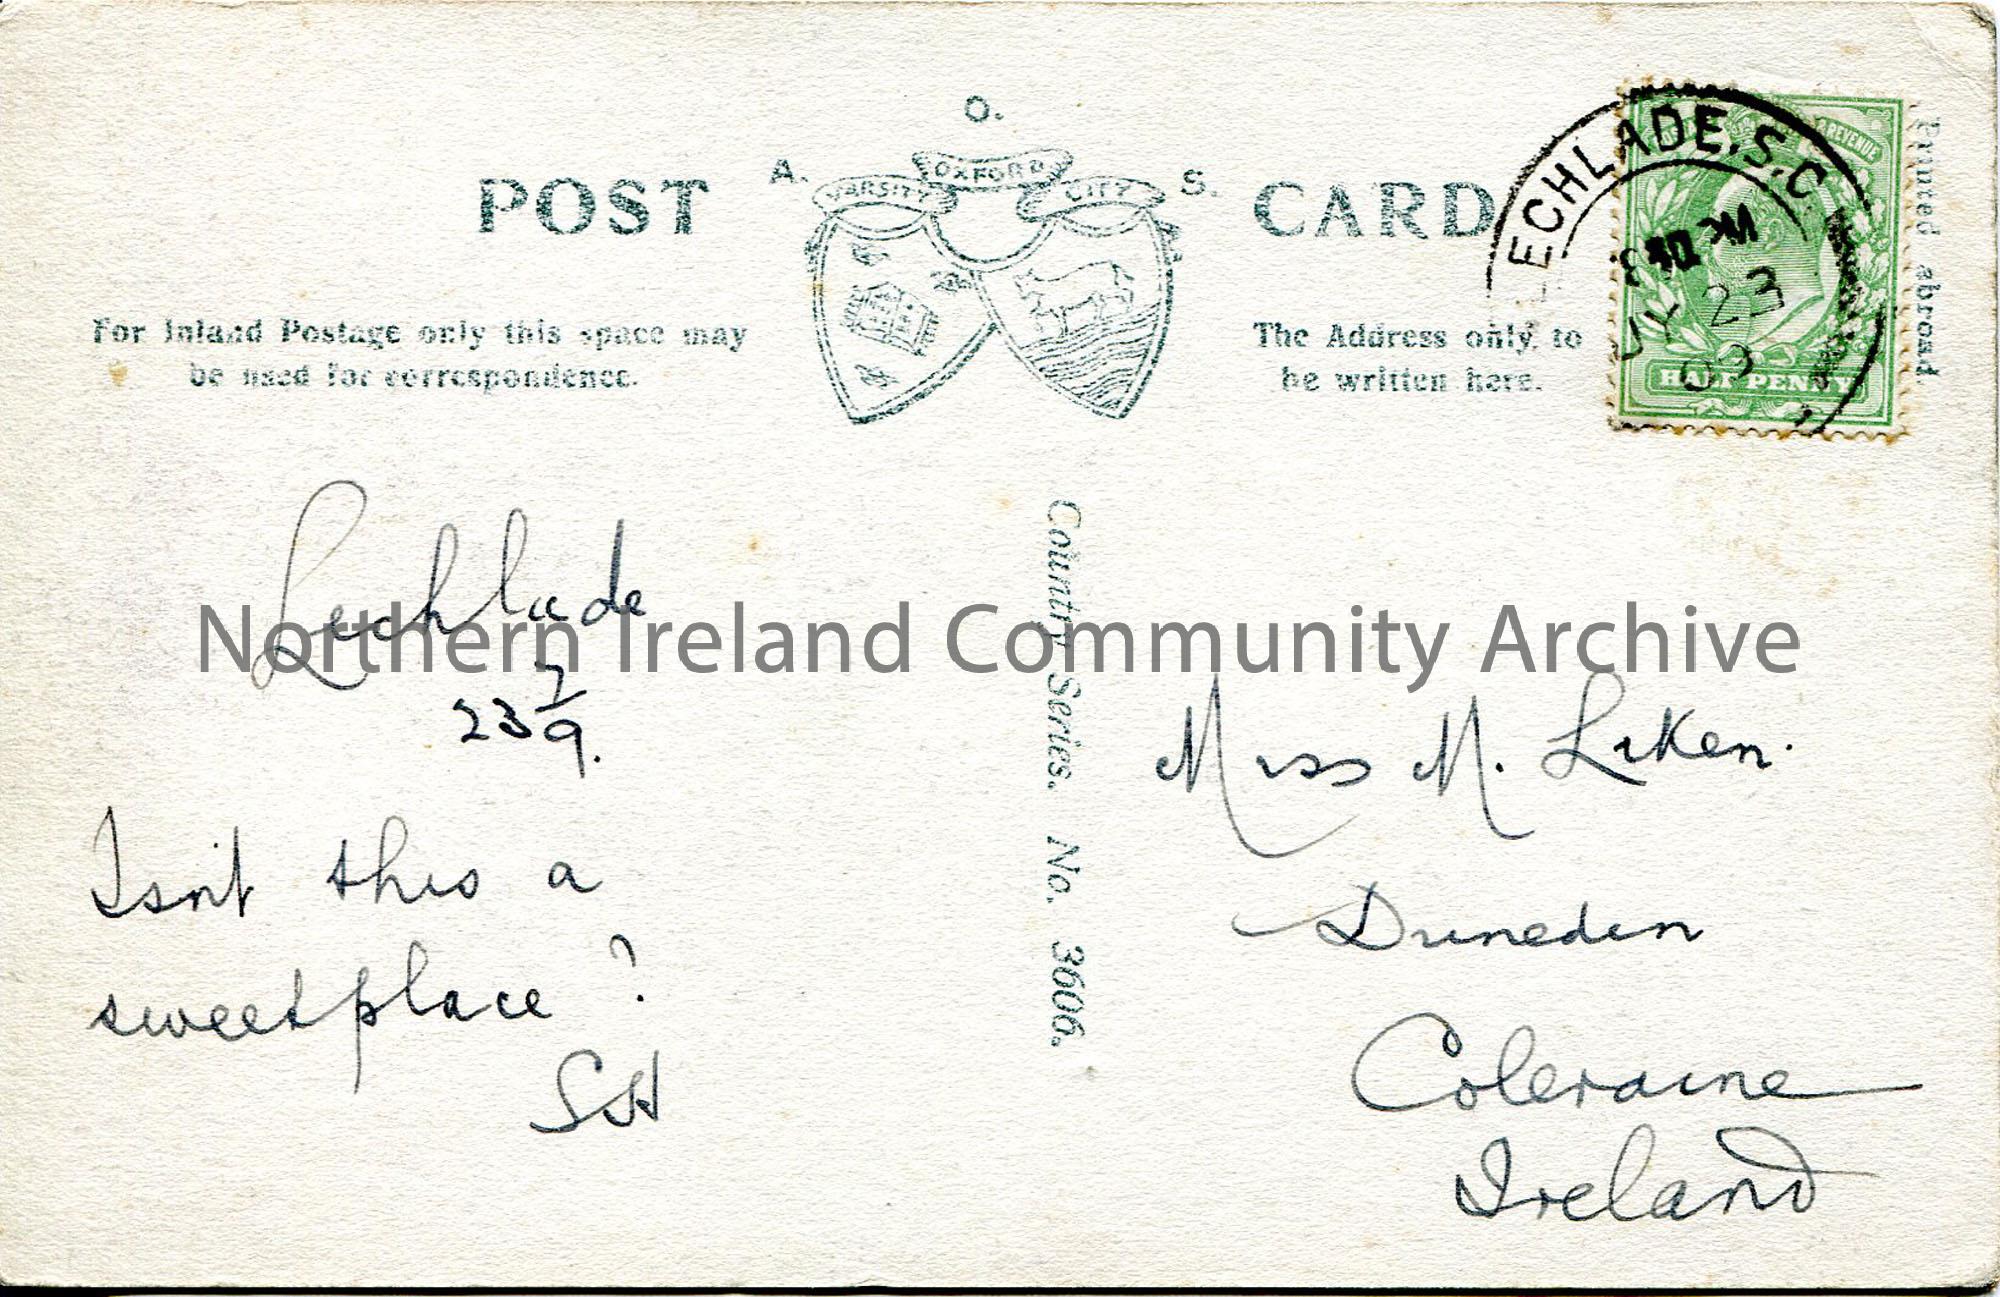 O.
POST A. VARSITY OXFORD CITY S. CARD
For Inland Postage only this space may
be used for correspondence.
The Address only to
be written here.
Printed abroad.
ECHLADE.S.O
JY 23
09
REVENUE
HALF PENNY
Lechlade
23 7/9.
Isn't this a
sweet place?
SH
Country Series. No. 3606.
Miss M.
Dunedin
Coleraine
Ireland
Northern Ireland Community Archive